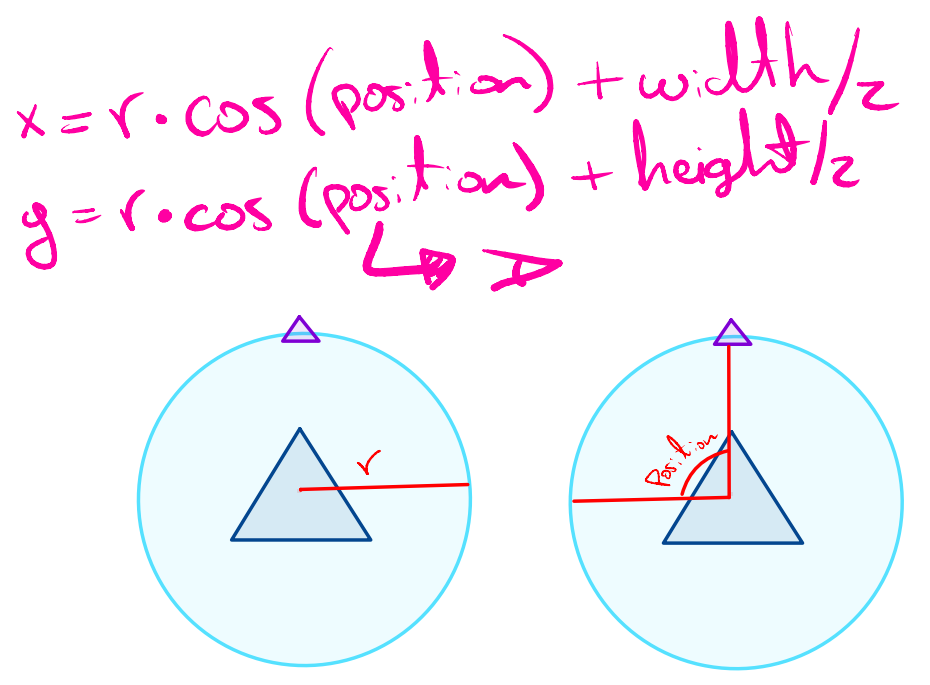 x = r · cos (position) + width/2
y = r · cos (position) + height/2
r
Position